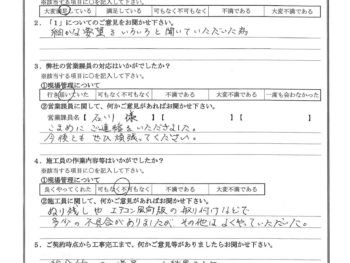 ※該当する項目に○を記入して下さい。
大変満足している 満足している 可もなく不可もなく 不満である 大変不満である
2.「1」についてのご意見をお聞かせ下さい。
細かな要望もいろいろと聞いていただいた為
3. 弊社の営業課員の対応はいかがでしたか？
※該当する項目に○を記入して下さい。
①現場管理について
行き届いていた 可もなく不可もなく 不満である 大変不満である 一度も会わなかった
②営業課員に関して、何かご意見があればお聞かせ下さい。
営業課員名【 石川 様 】【 】【 】
こまめにご連絡をいただきました。
今後とも ぜひ頑張ってください。
4. 施工員の作業内容等はいかがでしたか？
※該当する項目に○を記入して下さい。
①現場管理について
良くやってくれた 可もなく不可もなく 不満である 大変不満である
②施工員に関して、何かご意見があればお聞かせ下さい。
ぬり残しや エアコン風向板の取り付けなどで
多少の不具合がありましたが その他はよくやっていただいた。
5. ご契約時点から工事完工まで、何かご意見等がありましたらお聞かせ下さい。